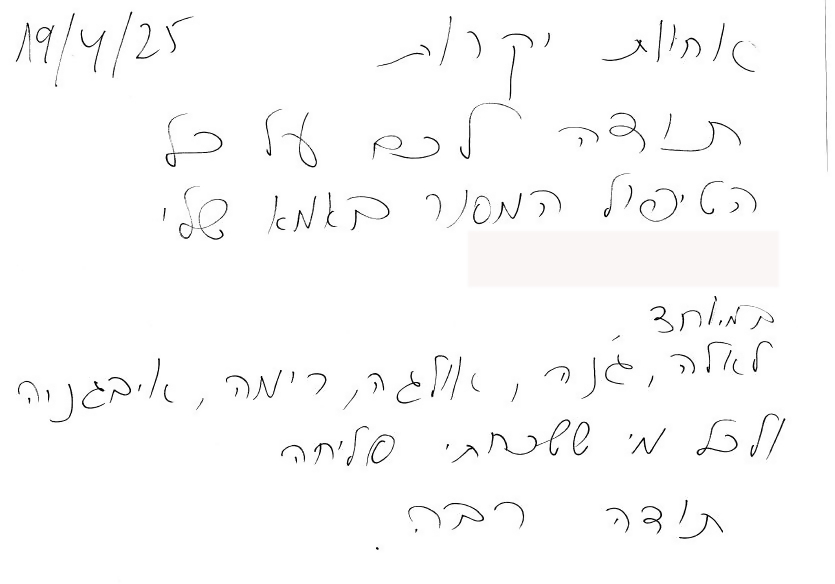 אחיות יקרות 19/4/25
תודה לכם על כל
הטיפול המסור באמא שלי
במיוחד
לאלה, ג'נה, אולגה, רימה, איבגניה
ולכל מי ששכחתי סליחה
תודה רבה.